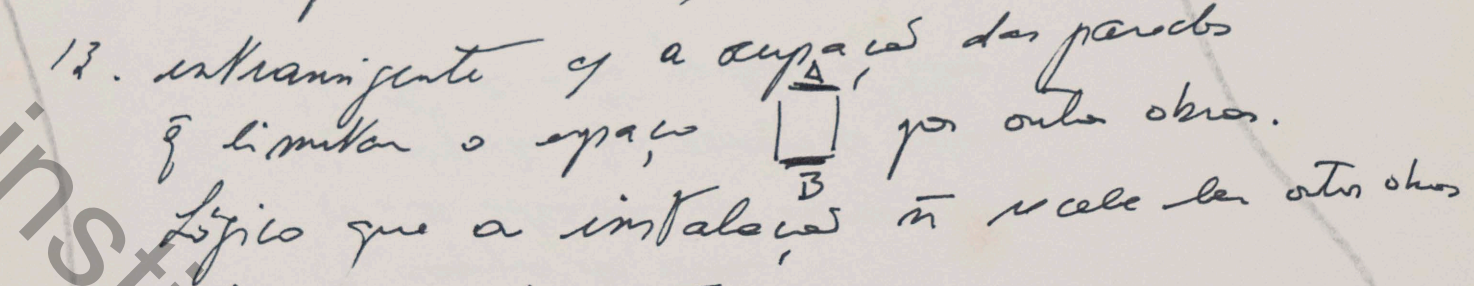 13. intransigente c/ a ocupação das paredes
A
q̄ limitam o espaço por outras obras.
B
Lógico que a instalação ñ recebe outras obras
inst